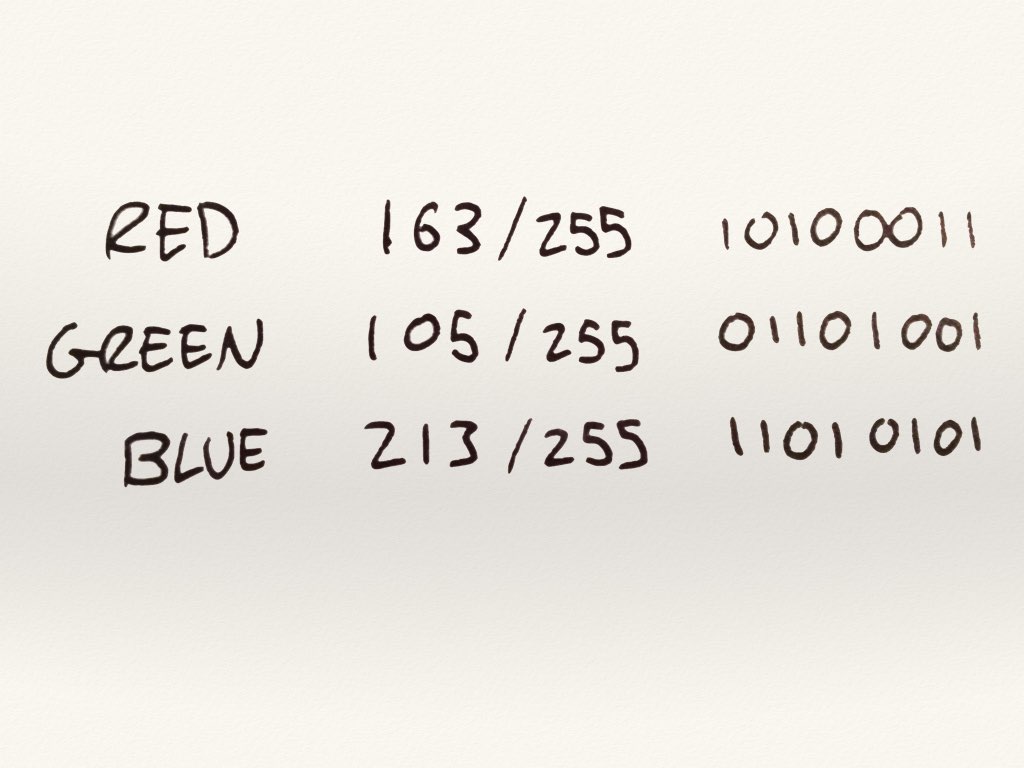 RED 163/255 10100011
GREEN 105/255 01101001
BLUE 213/255 11010101